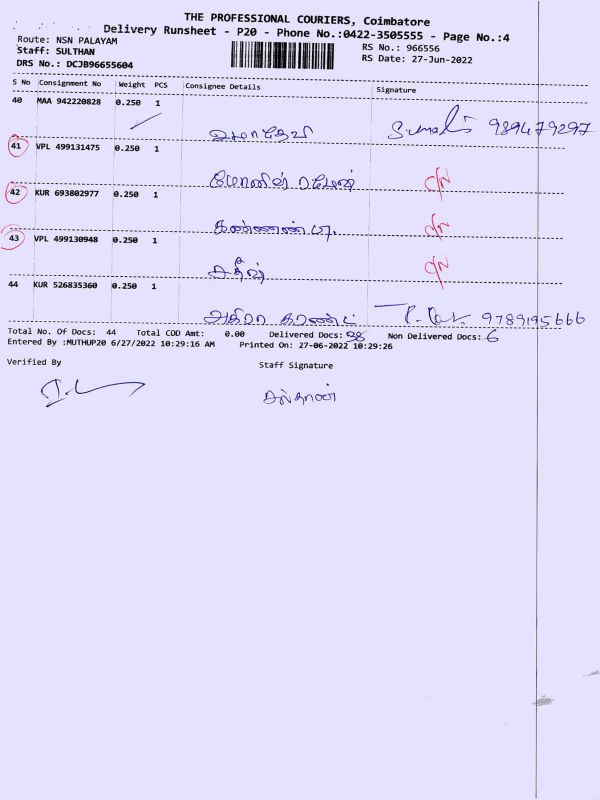 THE PROFESSIONAL COURIERS, Coimbatore
Delivery Runsheet - P20 - Phone No.:0422-3505555 - Page No.:4
Route: NSN PALAYAM
RS No.: 966556
Staff: SULTHAN
RS Date: 27-Jun-2022
DRS No.: DCJB96655604
S No Consignment No Weight PCS Consignee Details Signature
40 MAA 942220828 0.250 1
உமாதேவி 989479297
41 VPL 499131475 0.250 1
மோனிஷ் ரமேஷ் D/N
42 KUR 693802977 0.250 1
கண்ணன் D/N
43 VPL 499130948 0.250 1
சதீஷ் D/N
44 KUR 526835360 0.250 1
9789195666
Total No. Of Docs: 44 Total COD Amt: 0.00 Delivered Docs: 38 Non Delivered Docs: 6
Entered By :MUTHUP20 6/27/2022 10:29:16 AM Printed On: 27-06-2022 10:29:26
Verified By Staff Signature
சுல்தான்